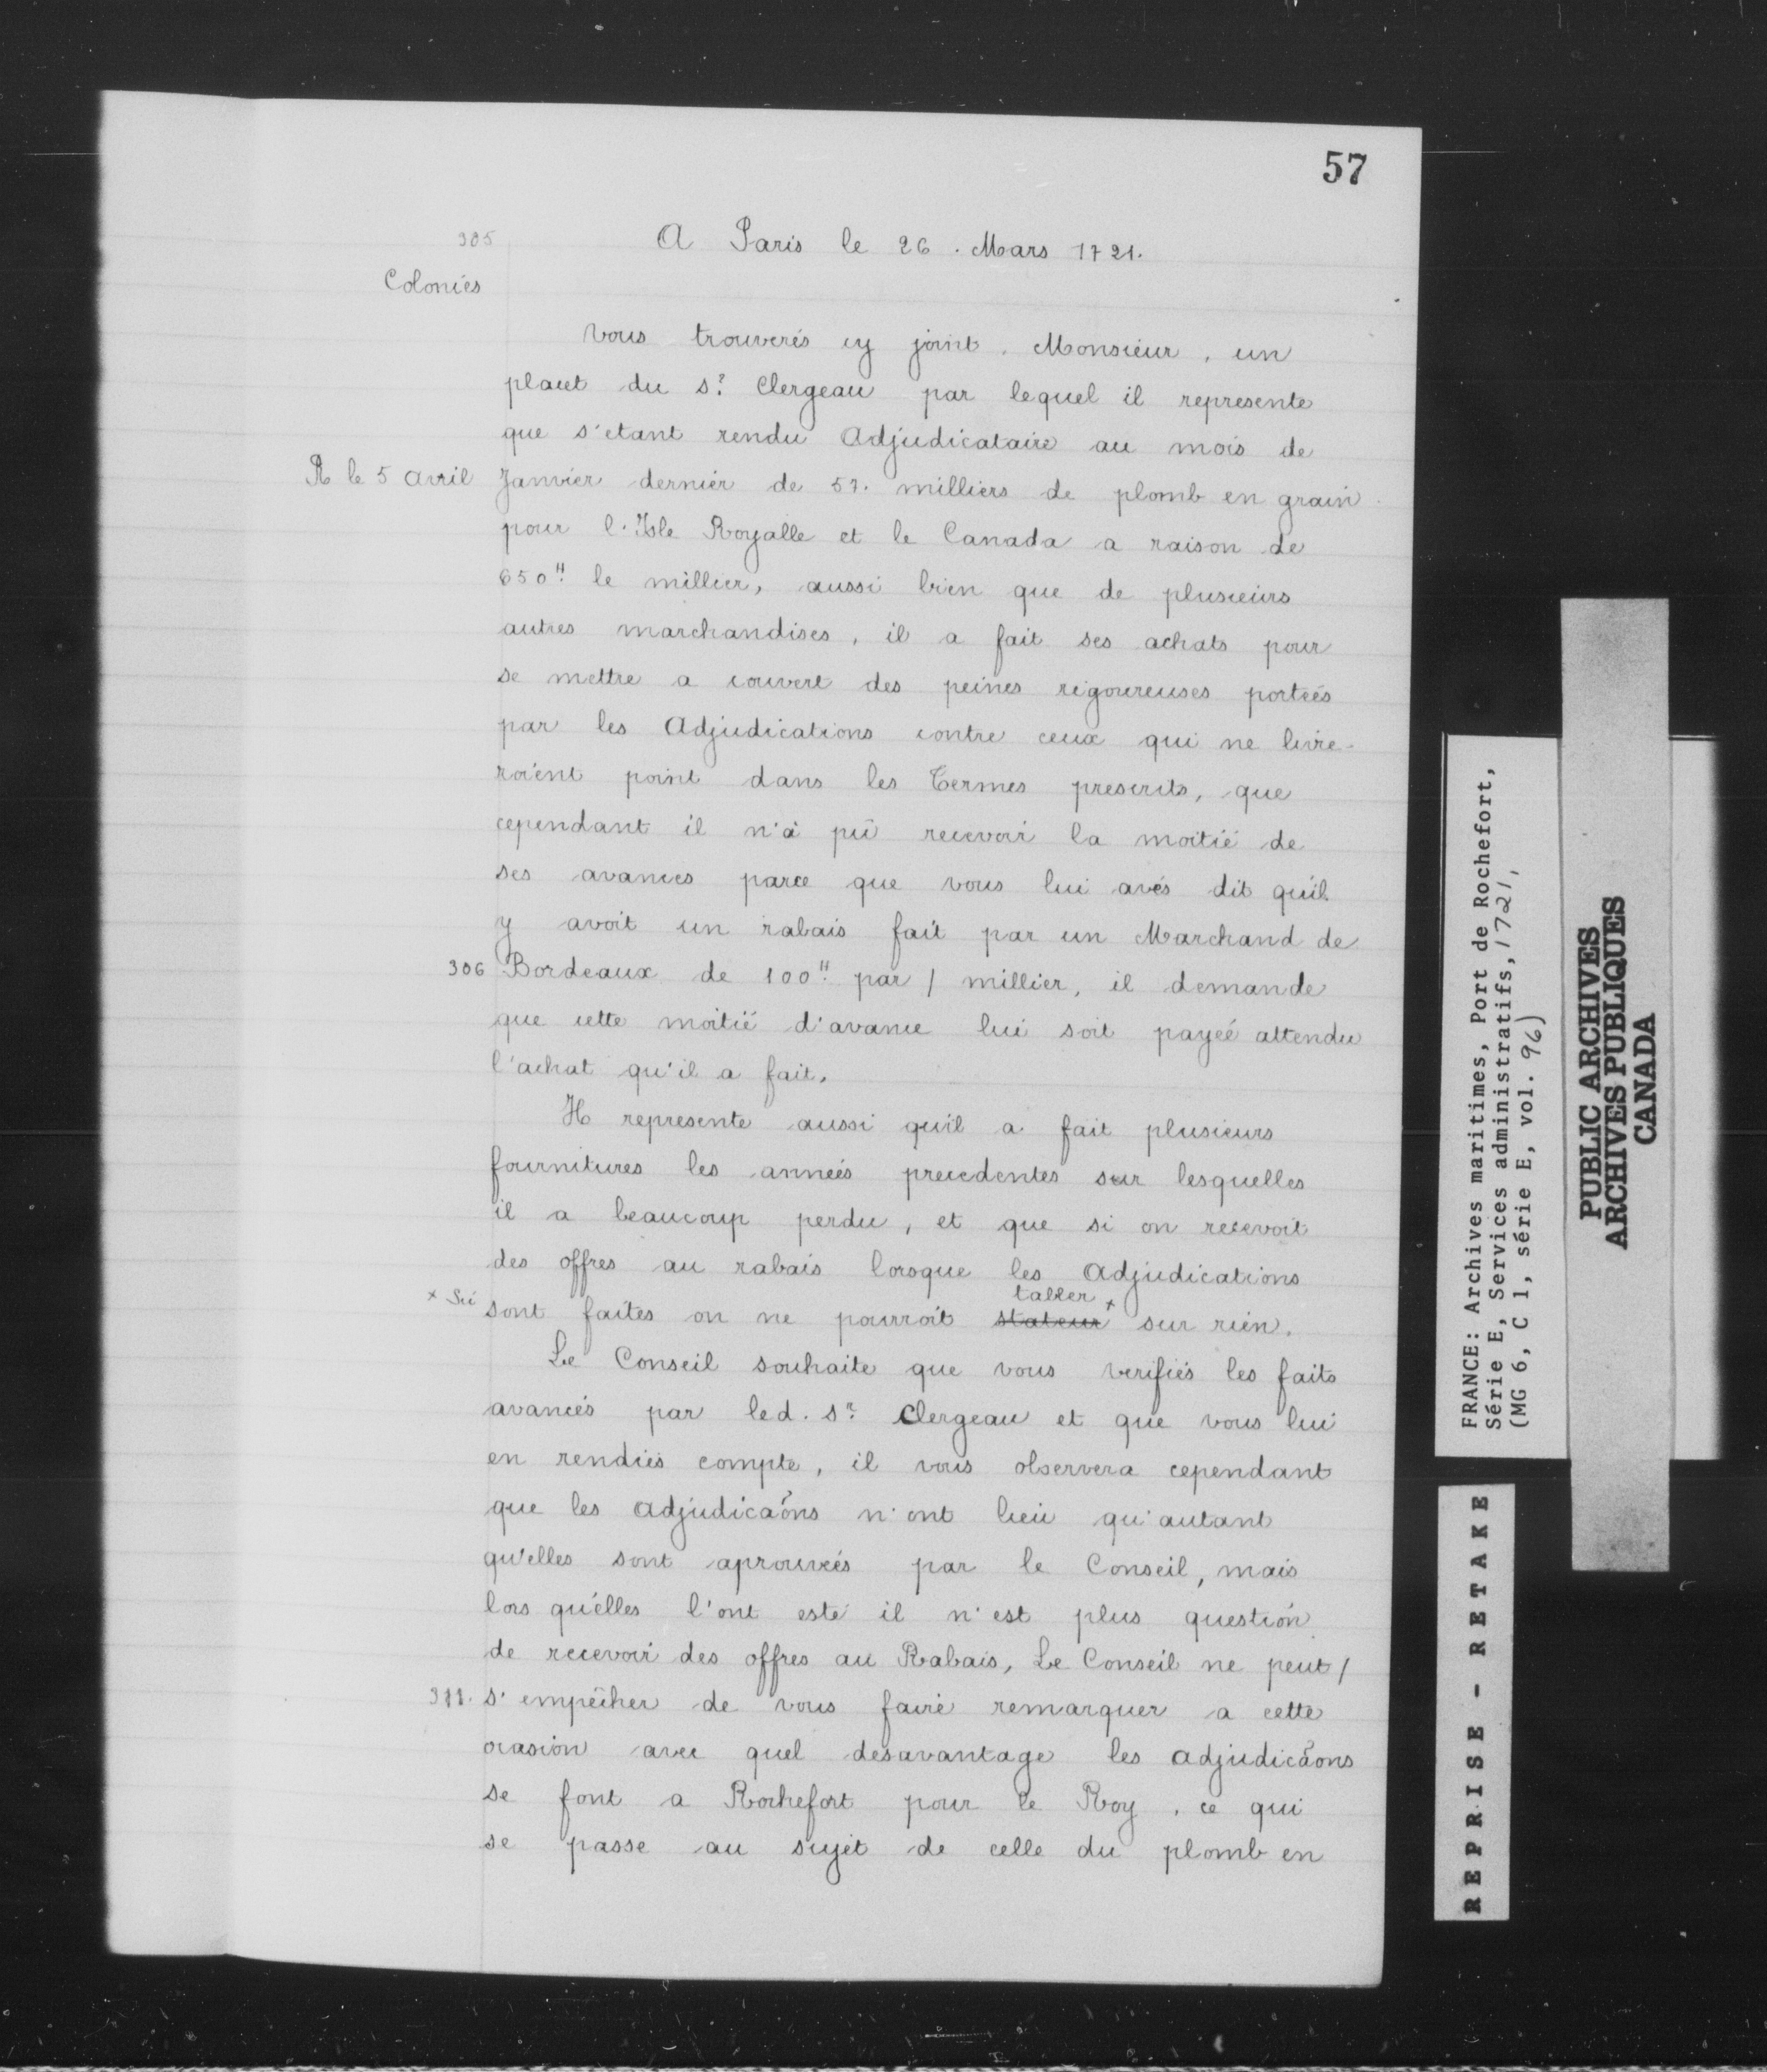 57
305
A Paris le 26. Mars 1721.
Colonies
Vous trouverés cy joint, Monsieur, un
placet du Sr. Clergeau par lequel il represente
que s'etant rendu Adjudicataire au mois de
R le 5 avril
Janvier dernier de 51. milliers de plomb en grain
pour l'Isle Royalle et le Canada a raison de
650# le millier, aussi bien que de plusieurs
autres marchandises, il a fait ses achats pour
se mettre a couvert des peines rigoureuses portées
par les Adjudications contre ceux qui ne livre-
roient point dans les Termes prescrits, que
cependant il n'a pû recevoir la moitié de
ses avances parce que vous lui avés dit qu'il
y avoit un rabais fait par un Marchand de
306 Bordeaux de 100# par / millier, il demande
que cette moitié d'avance lui soit payée attendu
l'achat qu'il a fait.
Il represente aussi qu'il a fait plusieurs
fournitures les années precedentes sur lesquelles
il a beaucoup perdu, et que si on recevoit
des offres au rabais lorsque les Adjudications
tabler
+ Sic
sont faites on ne pourroit stateur + sur rien.
Le Conseil souhaite que vous verifiés les faits
avancés par led. Sr. Clergeau et que vous lui
en rendiés compte, il vous observera cependant
que les adjudicaõns n'ont lieu qu'autant
qu'elles sont aprouvées par le Conseil, mais
lors qu'elles l'ont esté il n'est plus question
de recevoir des offres au Rabais, Le Conseil ne peut /
s'empêcher de vous faire remarquer a cette
ocasion avec quel desavantage les adjudicãons
se font a Rochefort pour le Roy, ce qui
se passe au sujet de celle du plomb en
FRANCE: Archives maritimes, Port de Rochefort,
Série E, Services administratifs, 1721,
(MG 6, C 1, série E, vol. 96)
PUBLIC ARCHIVES
ARCHIVES PUBLIQUES
CANADA
REPRISE - RETAKE